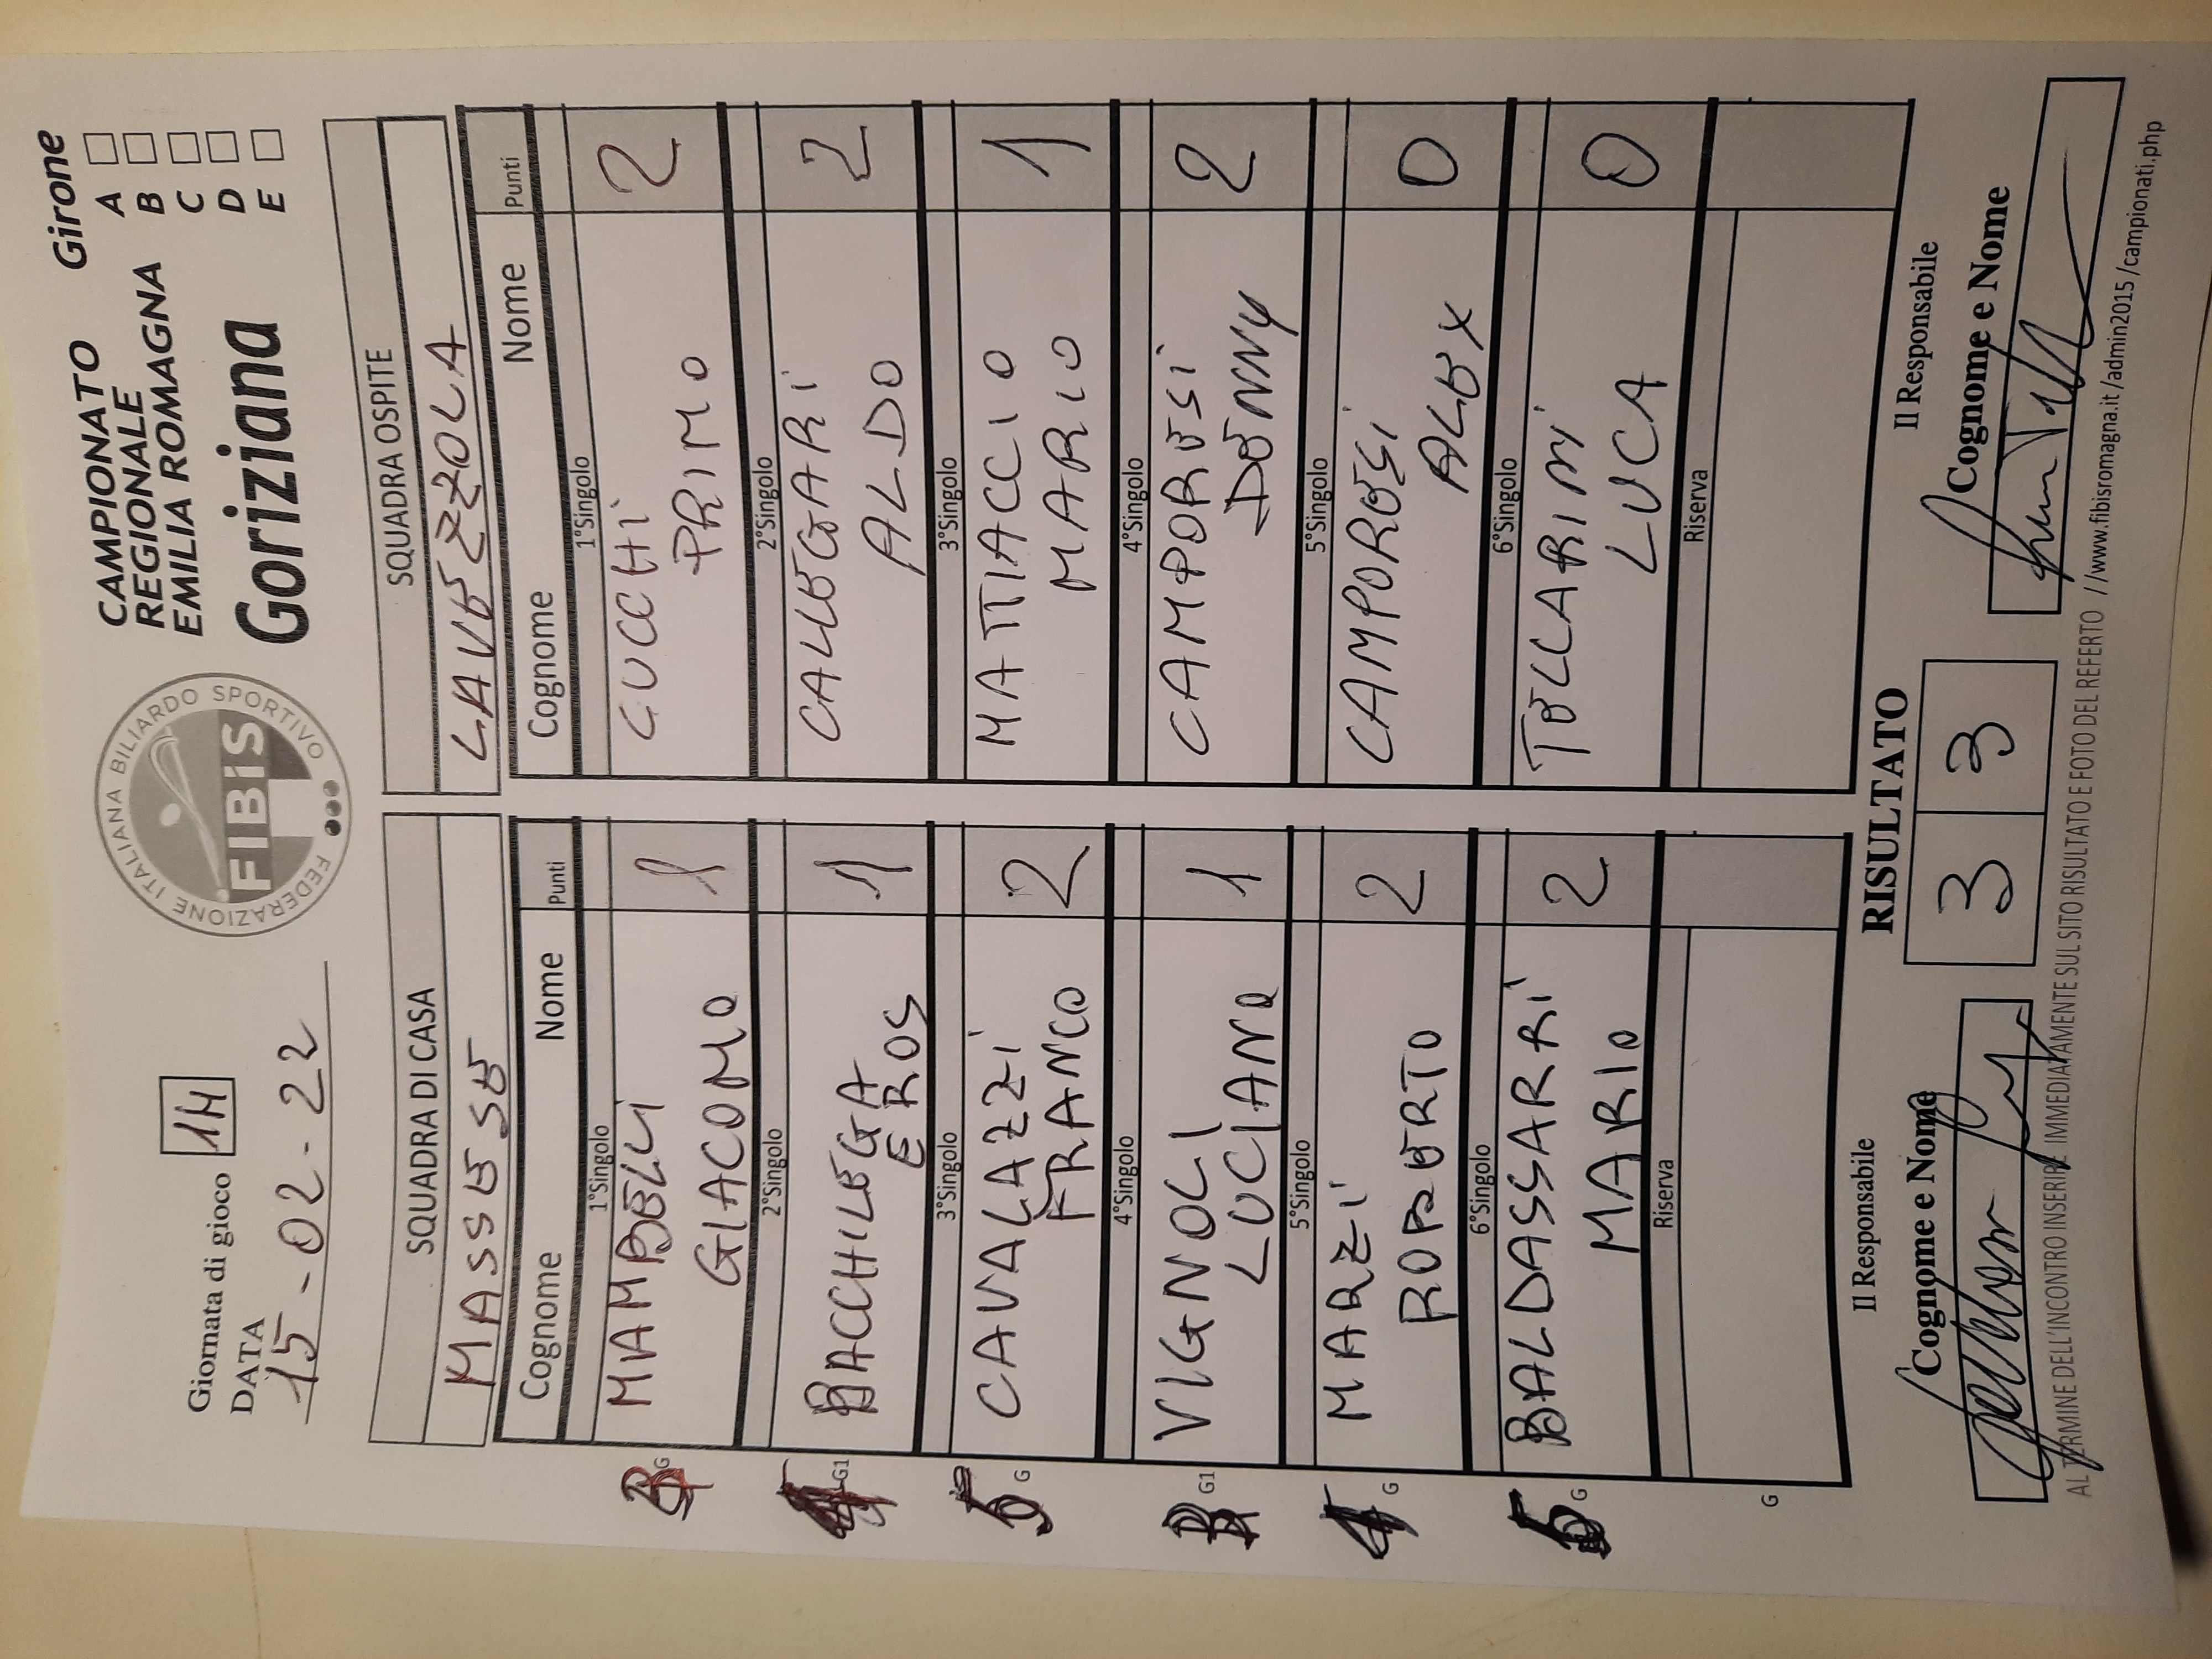 Giornata di gioco 14
DATA
15-02-22
FEDERAZIONE ITALIANA BILIARDO SPORTIVO
FIBiS
CAMPIONATO
REGIONALE
EMILIA ROMAGNA
Goriziana
Girone
A
B
C
D
E
SQUADRA DI CASA
MASSESE
Cognome Nome Punti
1°Singolo
MAMBELLI
GIACOMO
1
G
2°Singolo
BACCHILEGA
EROS
1
G1
3°Singolo
CAVALAZZI
FRANCO
2
5 G
4°Singolo
VIGNOLI
LUCIANO
1
G1
5°Singolo
MARZI
ROBERTO
2
G
6°Singolo
BALDASSARRI
MARIO
2
G
Riserva
G
SQUADRA OSPITE
LAVEZZOLA
Cognome Nome Punti
1°Singolo
CUCCHI
PRIMO
2
2°Singolo
CALLEGARI
ALDO
2
3°Singolo
MATTIACCIO
MARIO
1
4°Singolo
CAMPORESI
DENNY
2
5°Singolo
CAMPORESI
ALEX
0
6°Singolo
TELLARINI
LUCA
0
Riserva
Il Responsabile
Cognome e Nome
RISULTATO
3 3
Il Responsabile
Cognome e Nome
AL TERMINE DELL'INCONTRO INSERIRE IMMEDIATAMENTE SUL SITO RISULTATO E FOTO DEL REFERTO //www.fibisromagna.it/admin2015/campionati.php